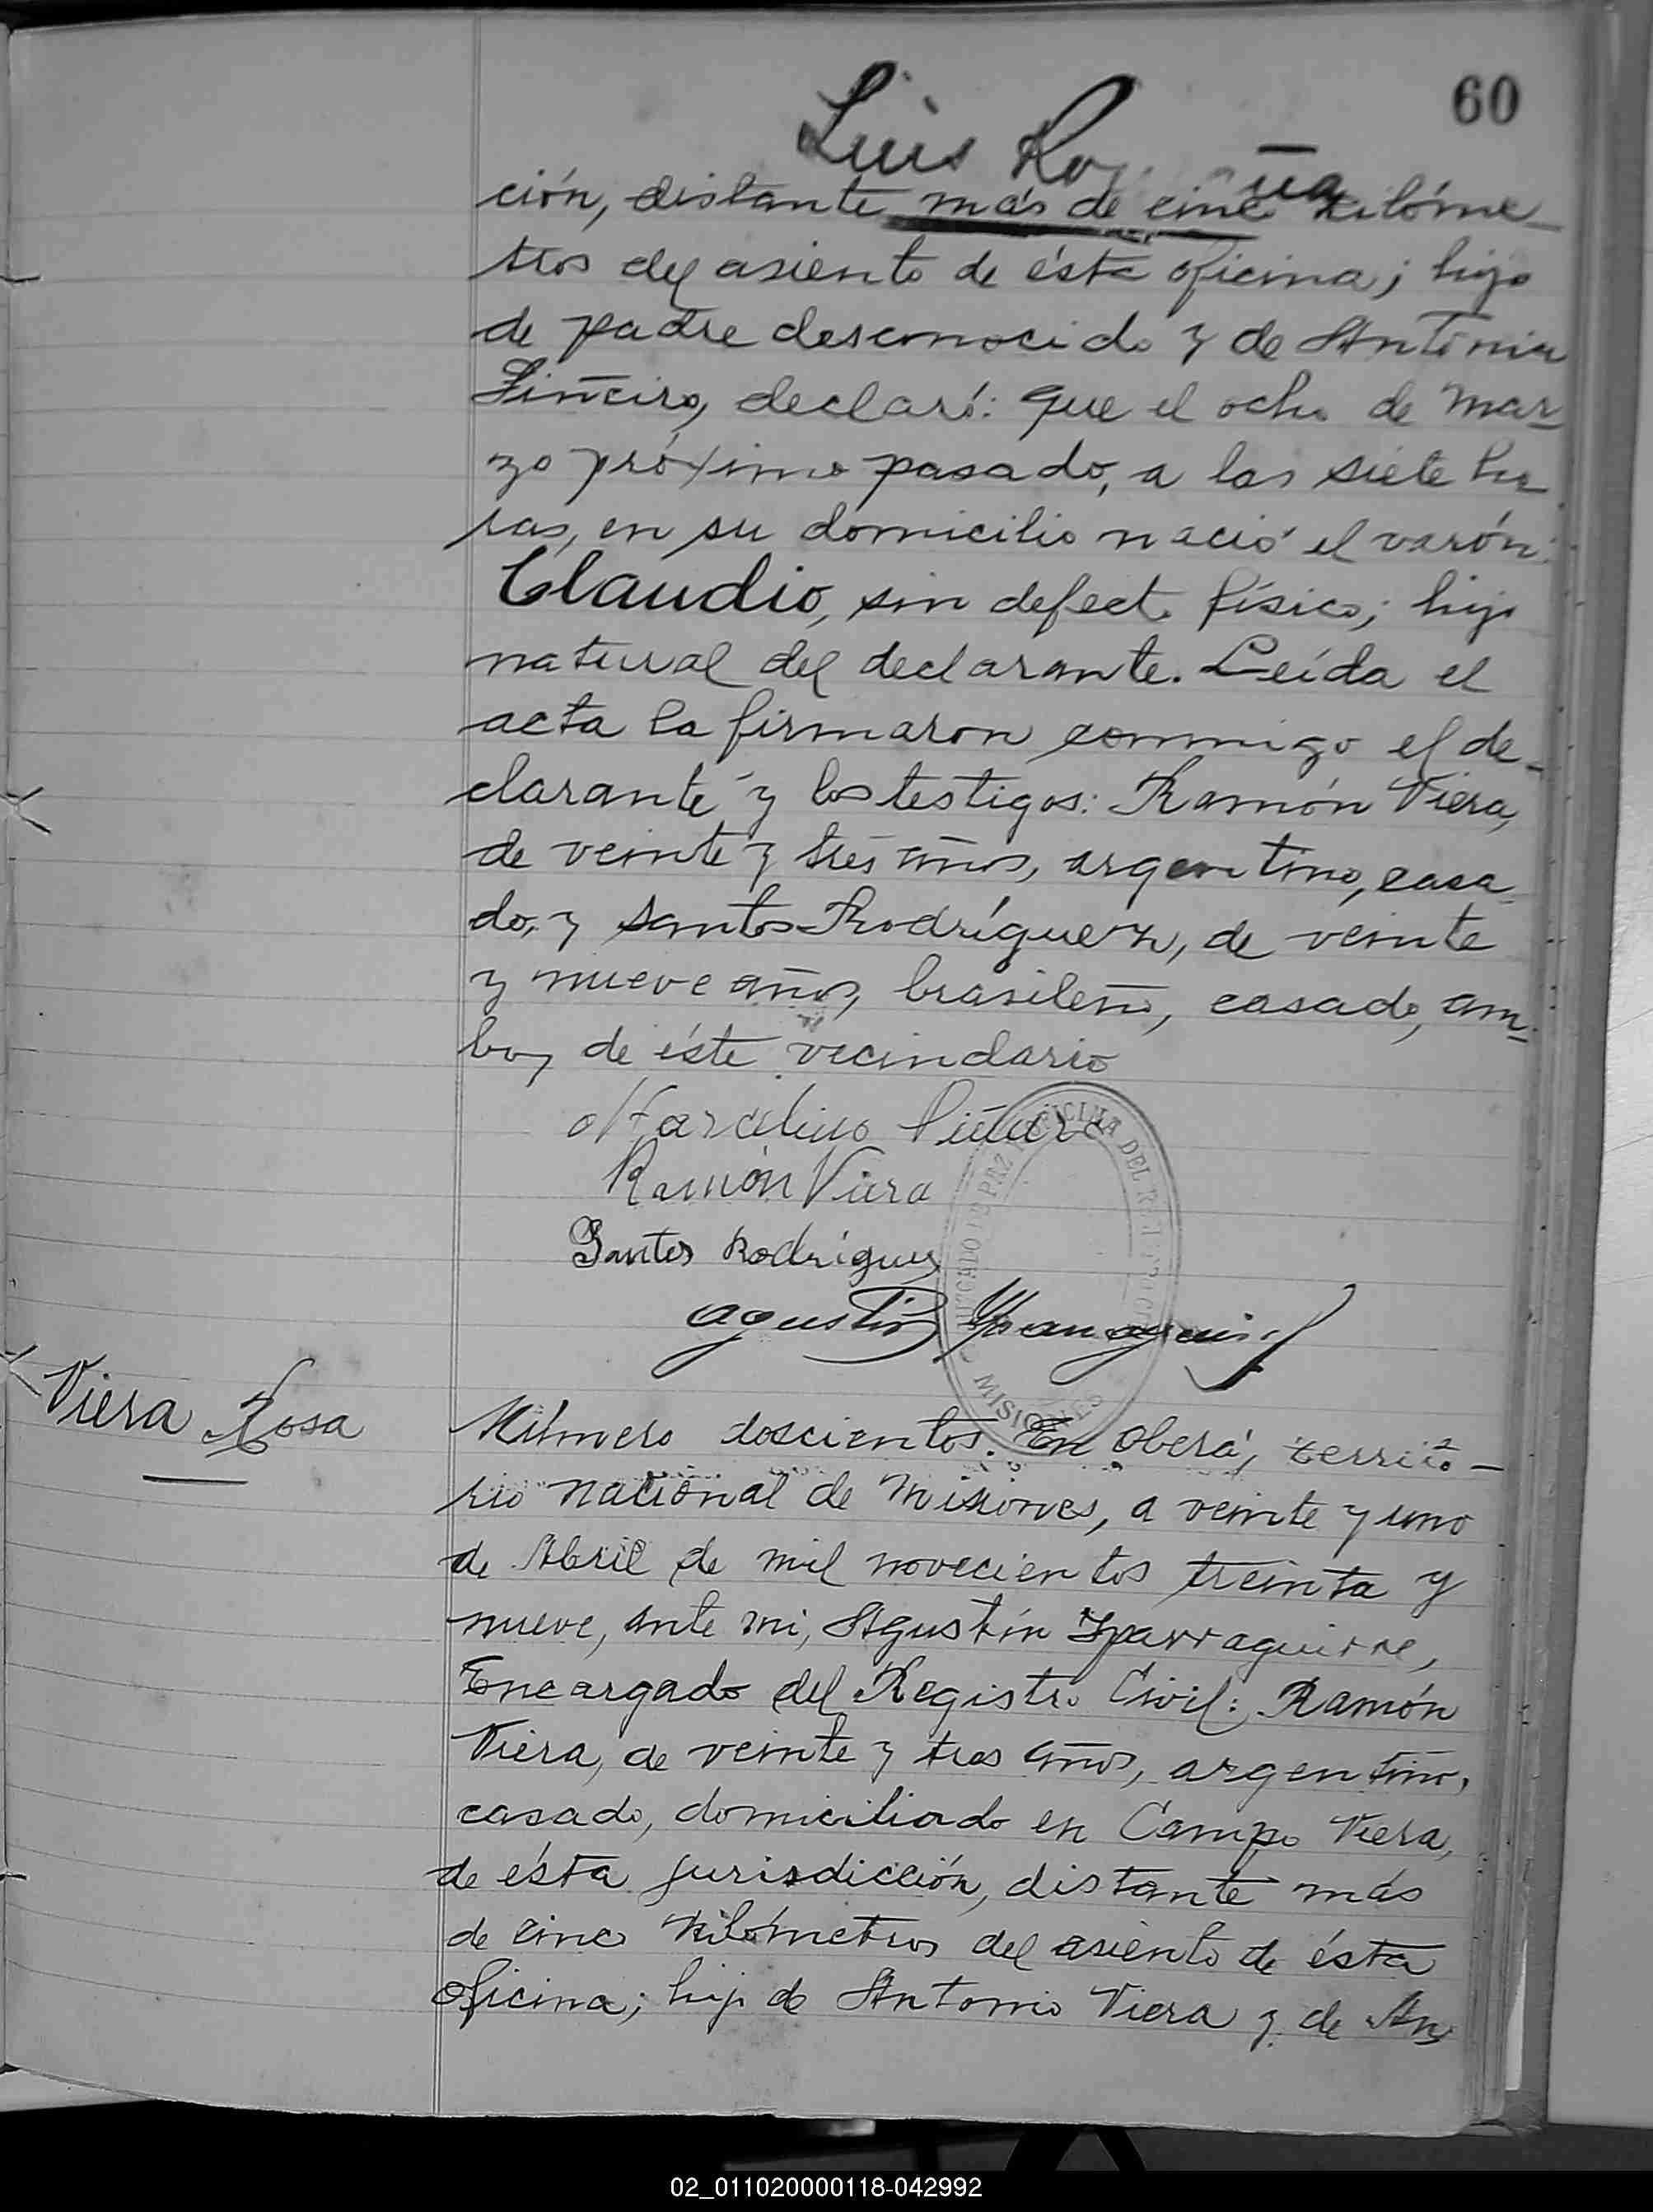 60
Luis Ro
ción, distante más de cinco kilóme-
tros del asiento de ésta oficina; hijo
de padre desconocido y de Antonia
Piñeiro, declaró: Que el ocho de Mar-
zo próximo pasado, a las siete ho-
ras, en su domicilio nació el varón:
Claudio, sin defecto físico; hijo
natural del declarante. Leída el
acta la firmaron conmigo el de-
clarante y los testigos: Ramón Viera,
de veinte y tres años, argentino, casa-
do, y Santos Rodríguez, de veinte
y nueve años, brasileño, casado, am-
bos de éste vecindario
Marcelino Piñeiro
Ramón Viera
Santos Rodriguez
Agustín Yparraguirre
JUZGADO DE PAZ OFICINA DEL REGISTRO CIVIL
MISIONES
Viera Rosa
Número doscientos. En Oberá, territo-
rio nacional de Misiones, a veinte y uno
de Abril de mil novecientos treinta y
nueve, ante mi, Agustín Yparraguirre,
Encargado del Registro Civil: Ramón
Viera, de veinte y tres años, argentino,
casado, domiciliado en Campo Viera,
de ésta jurisdicción, distante más
de cinco kilómetros del asiento de ésta
oficina; hijo de Antonio Viera y de An-
02_011020000118-042992